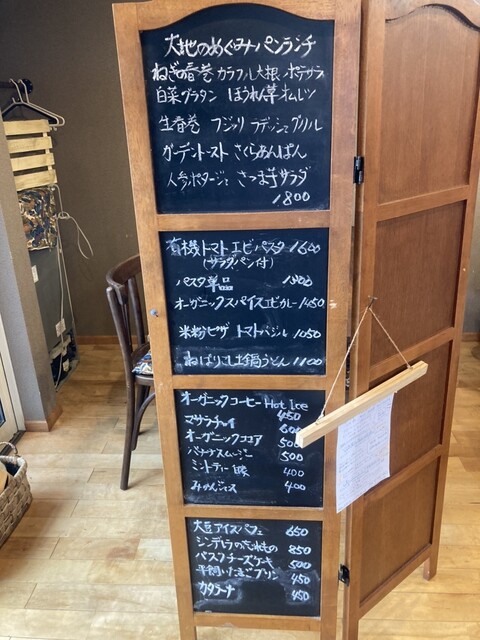 大地のめぐみパンランチ
ねぎの春巻 カラフル大根 ポテサラ
白菜グラタン ほうれん草オムレツ
生春巻 フジッリ ラディッシュグリル
ガーデントースト さくらあんぱん
人参ポタージュ さつま芋サラダ
1800
有機トマトエビパスタ 1600
(サラダパン付)
パスタ単品
オーガニックスパイスエビカレー 1450
米粉ピザ トマトバジル 1050
ねばりごし土鍋うどん 1100
オーガニックコーヒー Hot Ice
450
マサラチャイ 600
オーガニックココア 500
バナナスムージー 500
ミントティー 400
みかんジュース 400
大豆アイスパフェ 650
シンデレラの忘れもの 850
バスクチーズケーキ 500
平飼いたまごプリン 450
カタラーナ 450